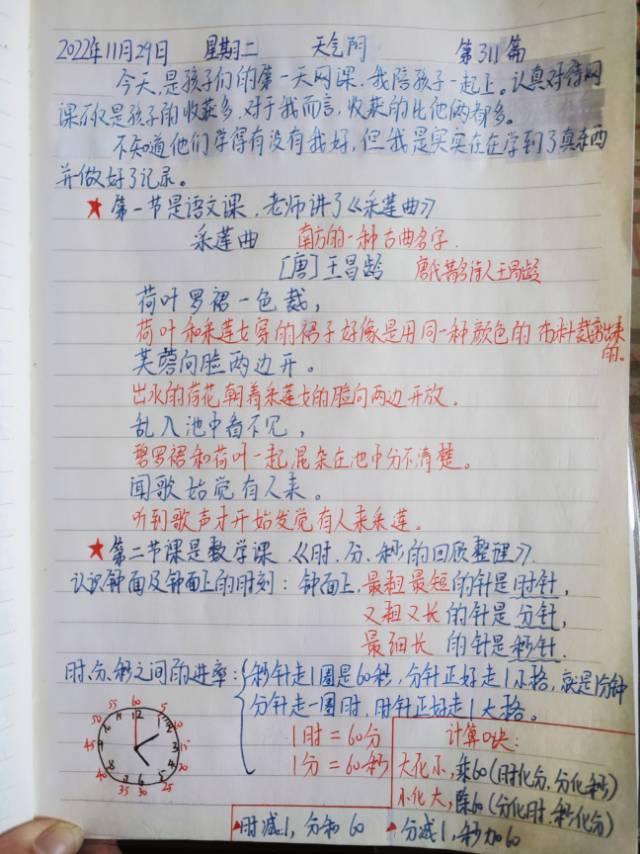 2022年11月29日 星期二 天气阴 第311篇
今天是孩子们的第一天网课,我陪孩子一起上。认真对待网
课不仅是孩子的收获多,对于我而言,收获的比他俩都多。
不知道他们学得有没有我好,但我是实实在在学到了真东西
并做好了记录。
★第一节是语文课,老师讲了《采莲曲》
采莲曲 南方的一种古曲名字.
[唐]王昌龄 唐代著名诗人王昌龄
荷叶罗裙一色裁,
荷叶和采莲女穿的裙子好像是用同一种颜色的布料裁剪出来
的。
芙蓉向脸两边开。
出水的荷花朝着采莲女的脸向两边开放.
乱入池中看不见,
碧罗裙和荷叶一起混杂在池中分不清楚。
闻歌始觉有人来。
听到歌声才开始发觉有人来采莲。
★第二节课是数学课.《时、分、秒的回顾整理》.
认识钟面及钟面上的时刻:钟面上,最粗最短的针是时针,
又粗又长的针是分针,
最细长的针是秒针.
时、分、秒之间的进率:秒针走1圈是60秒,分针正好走1小格,就是1分钟
分针走一圈时,时针正好走1大格。
1时=60分
1分=60秒
计算口诀:
大化小,乘60(时化分,分化秒)
小化大,除60(分化时.秒化分)
▲时减1,分加60 ▲分减1,秒加60
60 5 10 15 20 25 30 35 40 45 50 55
12 1 2 3 4 5